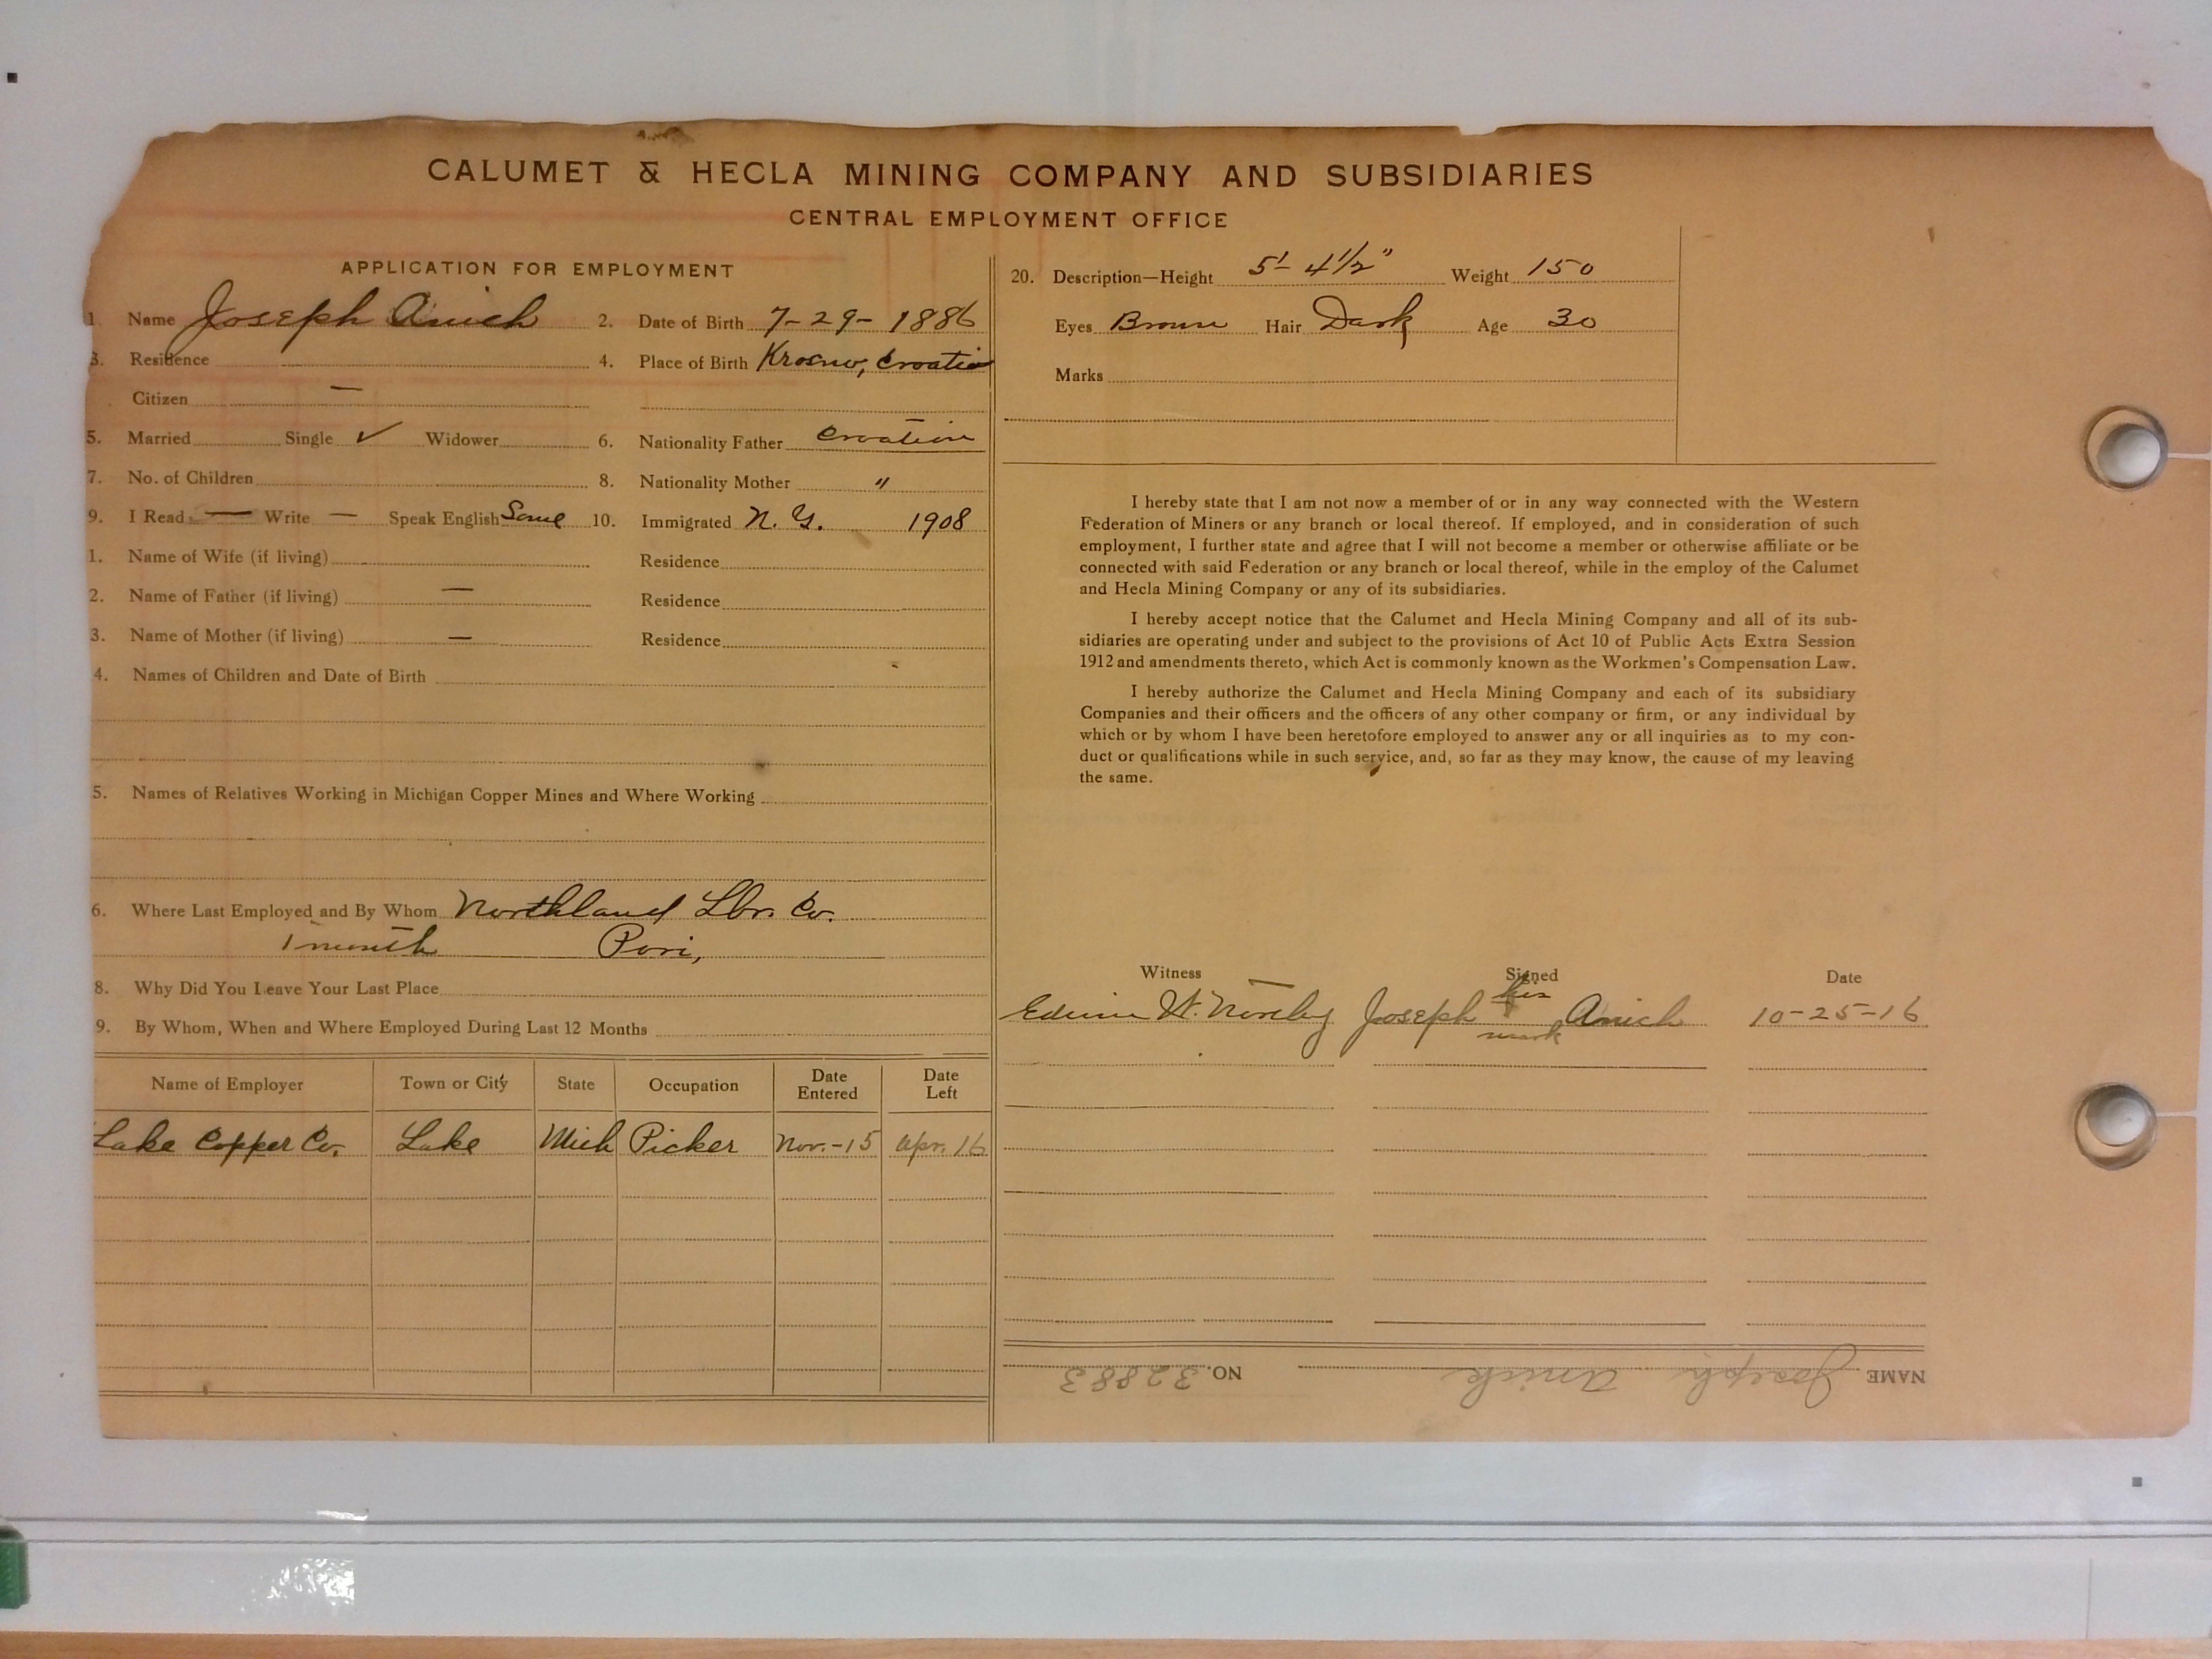 CALUMET & HECLA MINING COMPANY AND SUBSIDIARIES
CENTRAL EMPLOYMENT OFFICE
APPLICATION FOR EMPLOYMENT
1. Name Joseph Anich 2. Date of Birth 7-29-1886
3. Residence 4. Place of Birth Krosno, Croatia
Citizen —
5. Married Single ✓ Widower 6. Nationality Father Croation
7. No. of Children 8. Nationality Mother "
9. I Read — Write — Speak English Some 10. Immigrated N. Y. 1908
1. Name of Wife (if living) Residence
2. Name of Father (if living) — Residence
3. Name of Mother (if living) — Residence
4. Names of Children and Date of Birth
5. Names of Relatives Working in Michigan Copper Mines and Where Working
6. Where Last Employed and By Whom Northland Lbr. Co.
1 month Pori,
8. Why Did You Leave Your Last Place
9. By Whom, When and Where Employed During Last 12 Months
Name of Employer Town or City State Occupation Date Entered Date Left
Lake Copper Co. Lake Mich Picker Nov.-15 Apr. 16
20. Description—Height 5'-4½" Weight 150
Eyes Brown Hair Dark Age 30
Marks
I hereby state that I am not now a member of or in any way connected with the Western
Federation of Miners or any branch or local thereof. If employed, and in consideration of such
employment, I further state and agree that I will not become a member or otherwise affiliate or be
connected with said Federation or any branch or local thereof, while in the employ of the Calumet
and Hecla Mining Company or any of its subsidiaries.
I hereby accept notice that the Calumet and Hecla Mining Company and all of its sub-
sidiaries are operating under and subject to the provisions of Act 10 of Public Acts Extra Session
1912 and amendments thereto, which Act is commonly known as the Workmen's Compensation Law.
I hereby authorize the Calumet and Hecla Mining Company and each of its subsidiary
Companies and their officers and the officers of any other company or firm, or any individual by
which or by whom I have been heretofore employed to answer any or all inquiries as to my con-
duct or qualifications while in such service, and, so far as they may know, the cause of my leaving
the same.
Witness Signed Date
Edwin W. Joseph his mark Anich 10-25-16
NAME Joseph Anich NO. 32883